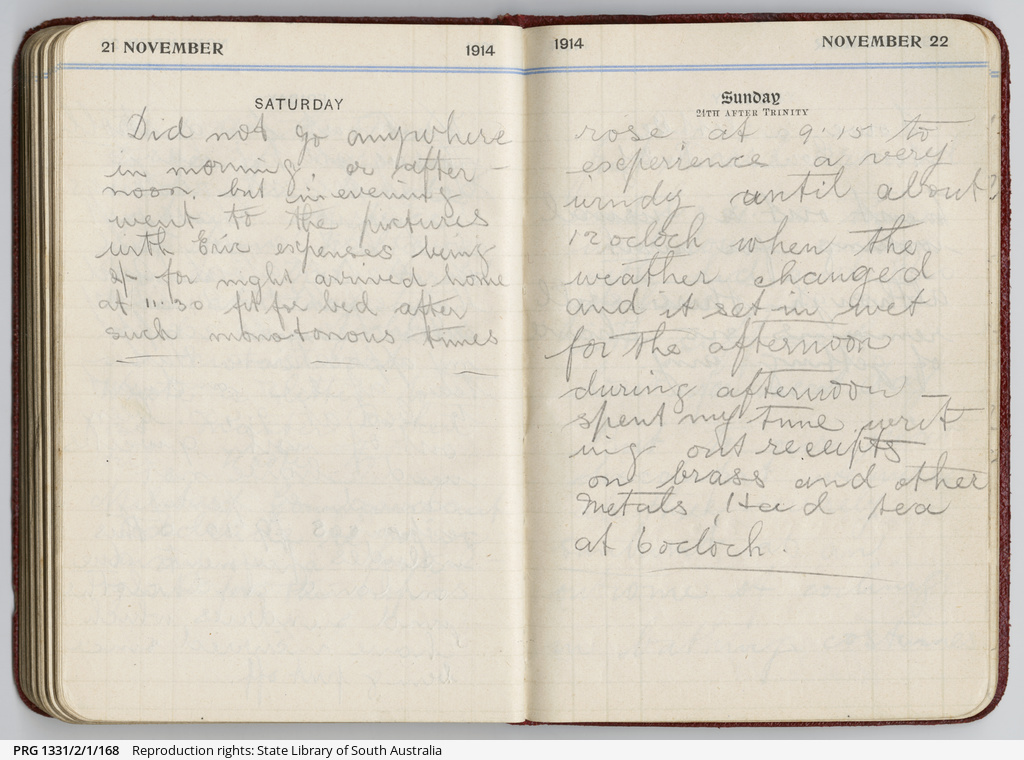 21 NOVEMBER 1914
SATURDAY
Did not go anywhere
in morning, or after-
noon. but in evening
went to the pictures
with Eric expenses being
for night arrived home
at 11.30 fit for bed after
such monotonous times
1914 NOVEMBER 22
Sunday
24TH AFTER TRINITY
rose at 9.15 to
experience a very
windy until about
12 oclock when the
weather changed
and it set in wet
for the afternoon
during afternoon
spent my time writ-
ing out receipts
on brass and other
metals, Had tea
at 6 oclock.
PRG 1331/2/1/168 Reproduction rights: State Library of South Australia